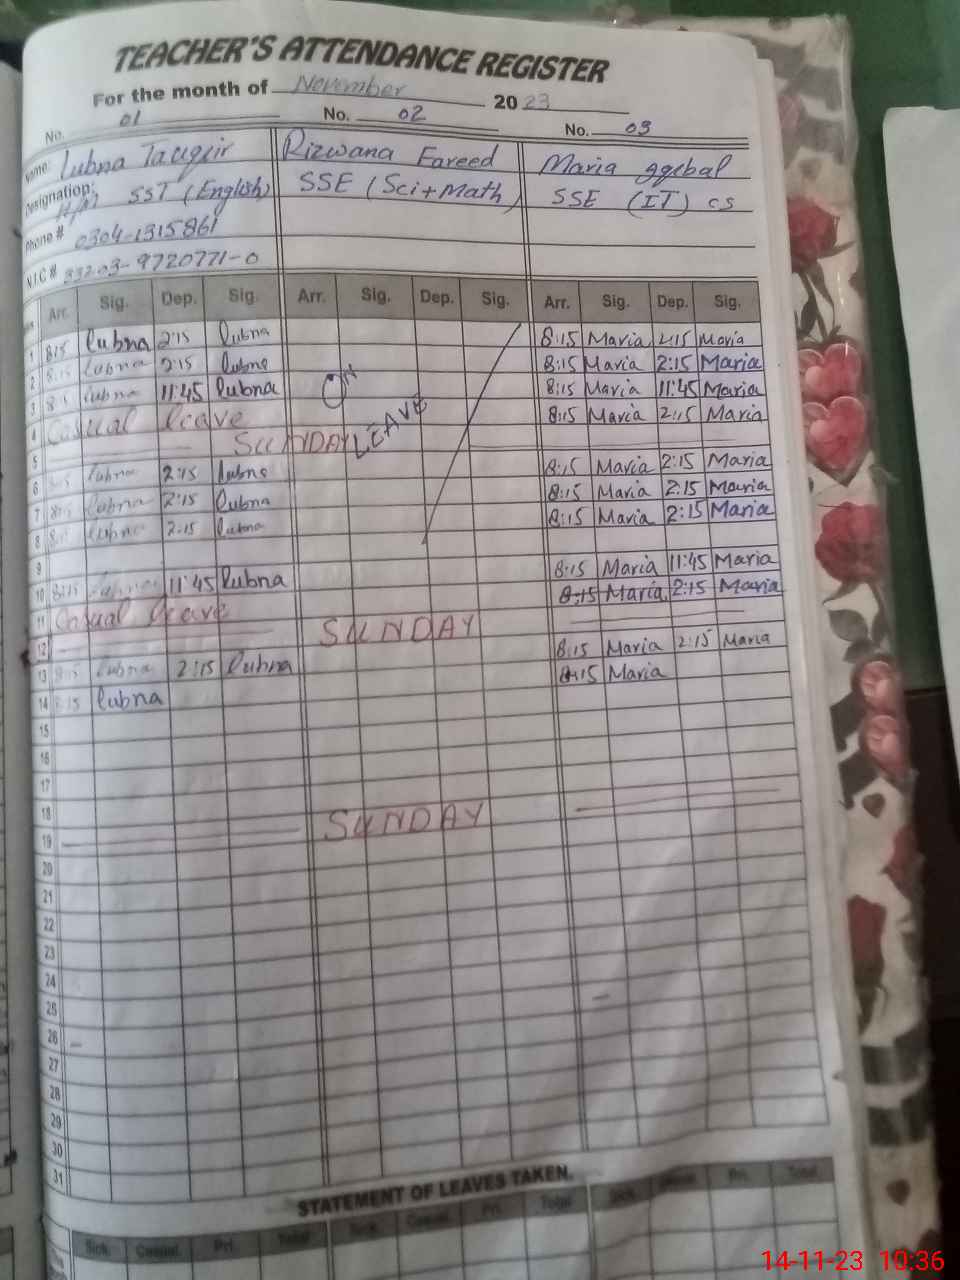 TEACHER'S ATTENDANCE REGISTER
For the month of November 2023
No. 01 No. 02 No. 03
Name: Lubna Tauqir Rizwana Fareed Maria Iqbal
Designation: H/M SST (English) SSE (Sci+Math) SSE (IT) CS
Phone # 0304-1315861
N.I.C # 33203-9720771-0
Arr. Sig. Dep. Sig. Arr. Sig. Dep. Sig. Arr. Sig. Dep. Sig.
1 8:15 lubna 2:15 lubna 8:15 Maria 2:15 Maria
2 8:15 lubna 2:15 lubna 8:15 Maria 2:15 Maria
3 8:15 lubna 11:45 lubna ON 8:15 Maria 11:45 Maria
4 Casual leave LEAVE 8:15 Maria 2:15 Maria
5 SUNDAY
6 8:15 lubna 2:15 lubna 8:15 Maria 2:15 Maria
7 8:15 lubna 2:15 lubna 8:15 Maria 2:15 Maria
8 8:15 lubna 2:15 lubna 8:15 Maria 2:15 Maria
9
10 8:15 lubna 11:45 lubna 8:15 Maria 11:45 Maria
11 Casual leave 8:15 Maria 2:15 Maria
12 SUNDAY
13 8:15 lubna 2:15 lubna 8:15 Maria 2:15 Maria
14 8:15 lubna 8:15 Maria
15
16
17
18
19 SUNDAY
20
21
22
23
24
25
26
27
28
29
30
31
STATEMENT OF LEAVES TAKEN.
Sick. Casual. Pri. Total Sick. Casual. Pri. Total Sick. Casual. Pri. Total
14-11-23 10:36